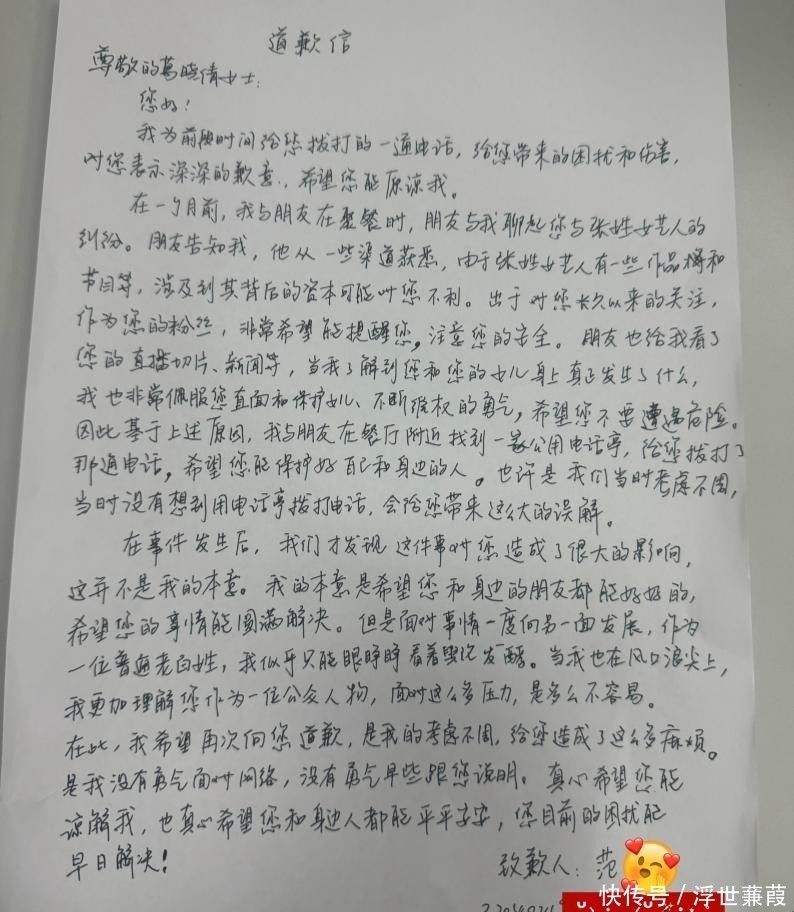 道歉信
尊敬的葛晓倩女士：
您好！
我为前段时间给您拨打的一通电话，给您带来的困扰和伤害，
对您表示深深的歉意，希望您能原谅我。
在一个月前，我与朋友在聚餐时，朋友与我聊起您与张姓女艺人的
纠纷。朋友告知我，他从一些渠道获悉，由于张姓女艺人有一些作品
节目等，涉及到其背后的资本可能对您不利。出于对您长久以来的关注，
作为您的粉丝，非常希望能提醒您，注意您的安全。朋友也给我看了
您的直播切片、新闻等，当我了解到您和您的女儿身上真正发生了什么，
我也非常佩服您直面和保护女儿、不断维权的勇气，希望您不要遭遇危险。
因此基于上述原因，我与朋友在餐厅附近找到一家公用电话亭，给您拨打了
那通电话，希望您能保护好自己和身边的人。也许是我们当时考虑不周，
当时没有想到用电话亭拨打电话，会给您带来这么大的误解。
在事件发生后，我们才发现这件事对您造成了很大的影响，
这并不是我的本意。我的本意是希望您和身边的朋友都能好好的，
希望您的事情能圆满解决。但是面对事情一度向另一面发展，作为
一位普通老百姓，我似乎只能眼睁睁看着舆论发酵。当我也在风口浪尖上，
我更加理解您作为一位公众人物，面对这么多压力，是多么不容易。
在此，我希望再次向您道歉，是我的考虑不周，给您造成了这么多麻烦。
是我没有勇气面对网络，没有勇气早些跟您说明。真心希望您能
谅解我，也真心希望您和身边人都能平平安安，您目前的困扰能
早日解决！
致歉人：范
快传号／浮世蒹葭